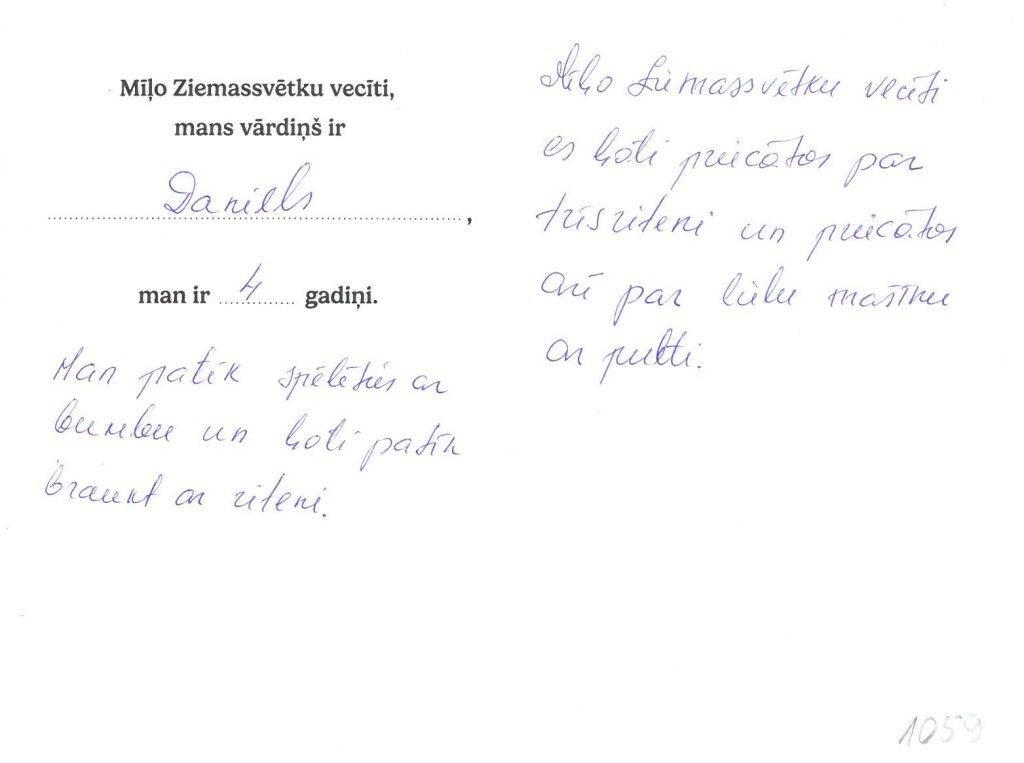 Mīļo Ziemassvētku vecīti,
mans vārdiņš ir
Daniels,
man ir 4 gadiņi.
Man patīk spēlēties ar
bumbu un ļoti patīk
braukt ar riteni.
Mīļo Ziemassvētku vecīti
es ļoti priecātos par
trīsriteni un priecātos
arī par lielu mašīnu
ar pulti.
1059